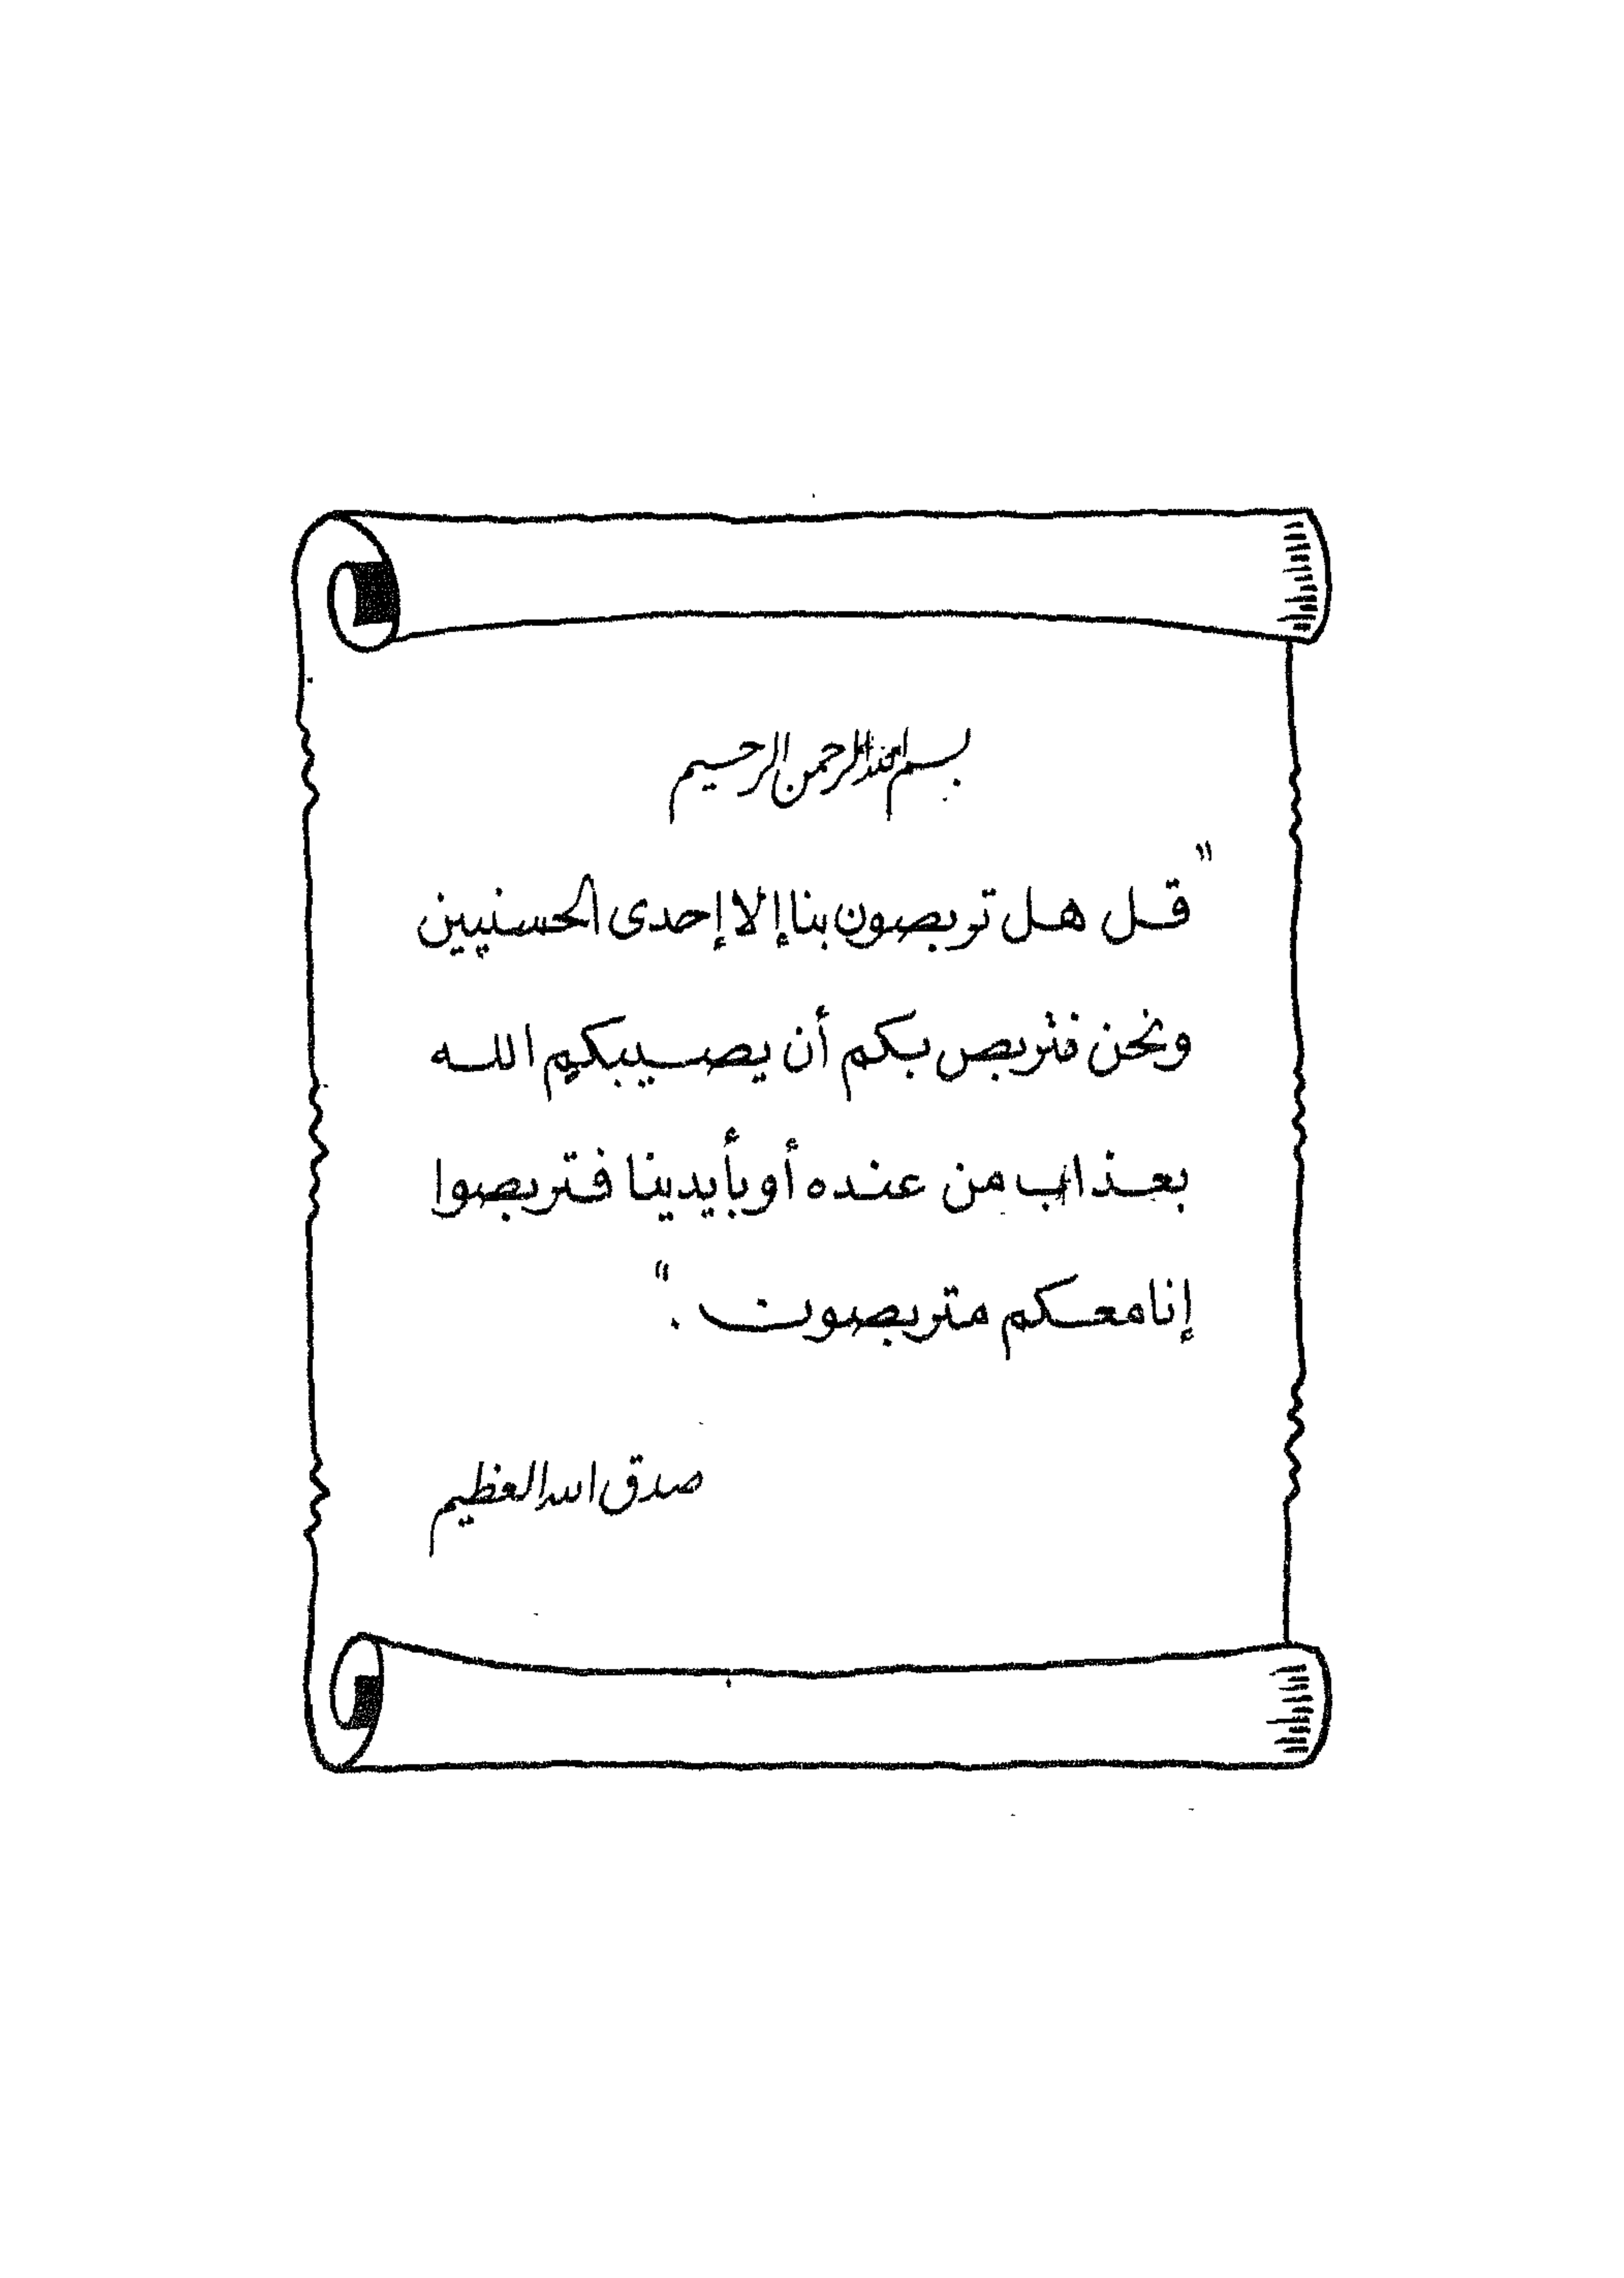 بسم الله الرحمن الرحيم
"قل هل تربصون بنا إلا إحدى الحسنيين
ونحن نتربص بكم أن يصيبكم الله
بعذاب من عنده أو بأيدينا فتربصوا
إنا معكم متربصون ."
صدق الله العظيم